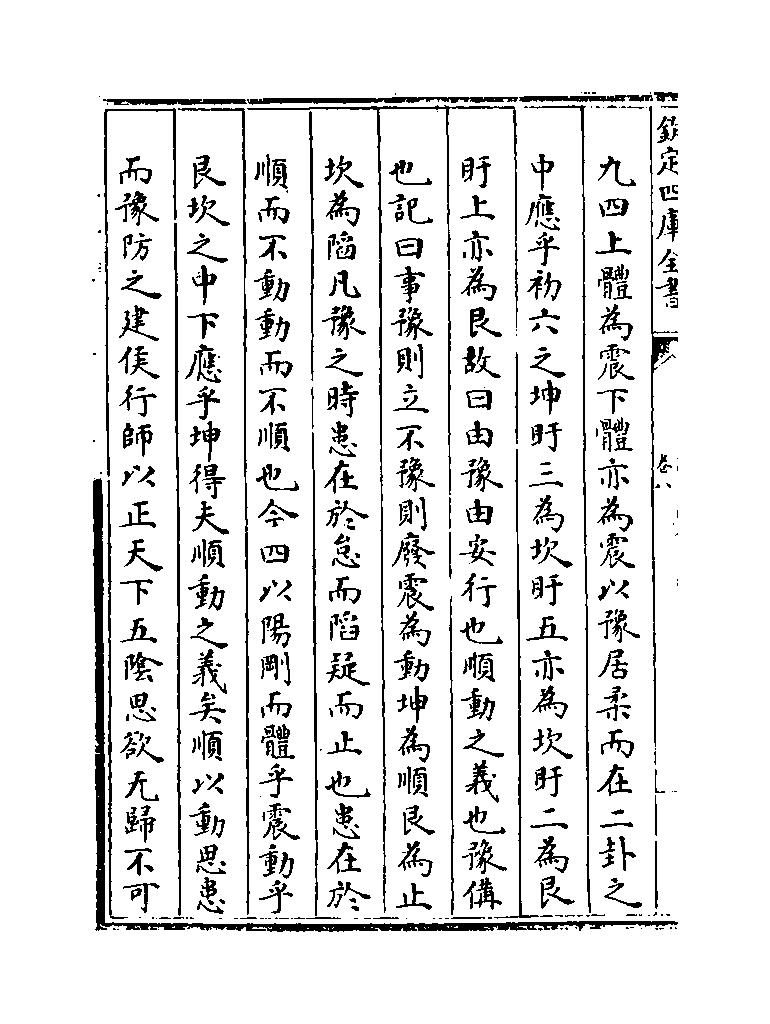 欽定四庫全書
卷八
九四上體為震下體亦為震以豫居柔而在二卦之
中應乎初六之坤盱三為坎盱五亦為坎盱二為艮
盱上亦為艮故曰由豫由安行也順動之義也豫備
也記曰事豫則立不豫則廢震為動坤為順艮為止
坎為陷凡豫之時患在於怠而陷疑而止也患在於
順而不動動而不順也今四以陽剛而體乎震動乎
艮坎之中下應乎坤得夫順動之義矣順以動思患
而豫防之建侯行師以正天下五陰思欲无歸不可